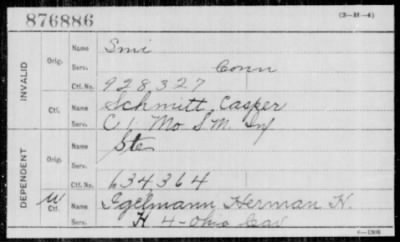 876886
(3-H-4)
INVALID
Orig. Name Smi
Serv. Conn
Ctf. No. 928,327
Ctf. Name Schmitt, Casper
Serv. C 1. Mo S.M. Inf
DEPENDENT
Orig. Name Ste
Serv.
Ctf. No. 634364
W Ctf. Name Igelmann Herman H.
Serv. H 4-Ohio Cav